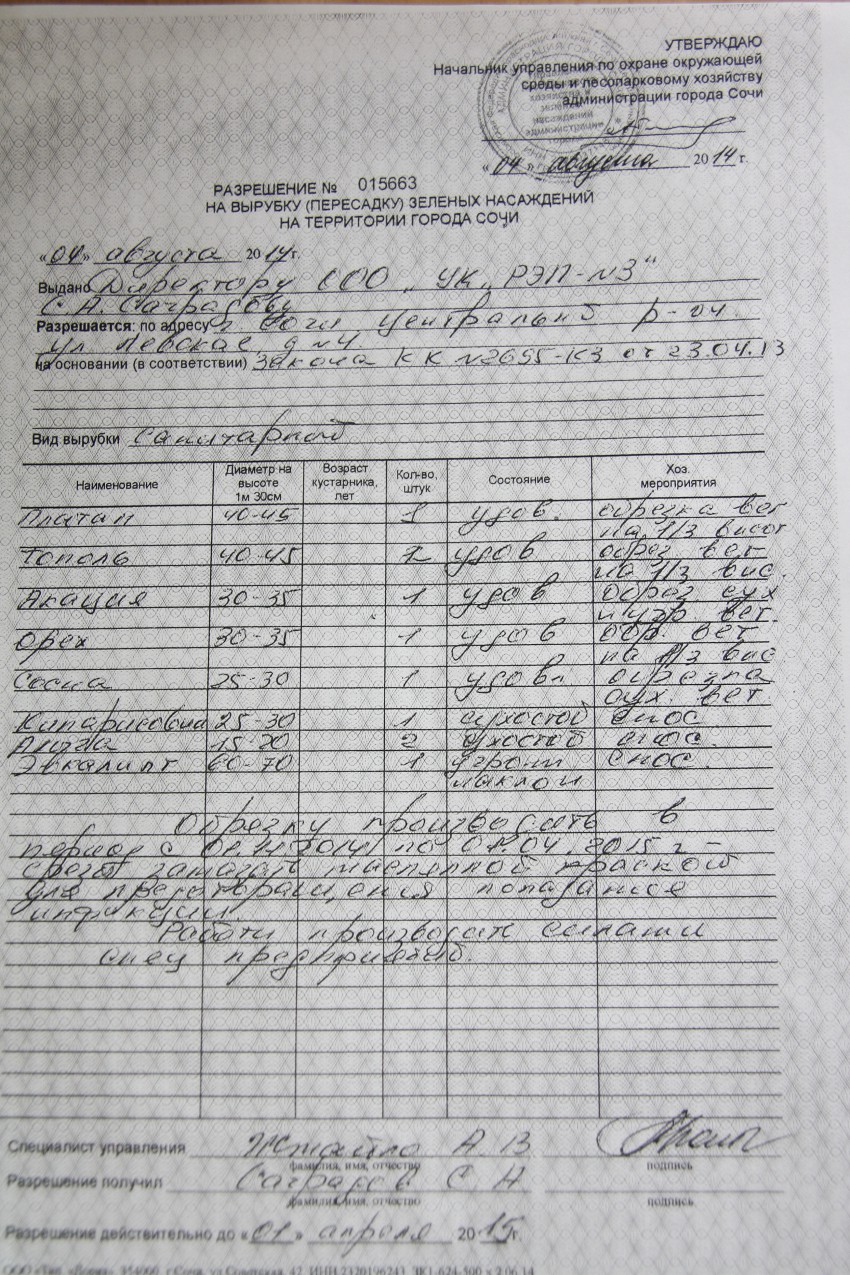 УТВЕРЖДАЮ
Начальник управления по охране окружающей
среды и лесопарковому хозяйству
администрации города Сочи
«04» августа 2014 г.
РАЗРЕШЕНИЕ № 015663
НА ВЫРУБКУ (ПЕРЕСАДКУ) ЗЕЛЕНЫХ НАСАЖДЕНИЙ
НА ТЕРРИТОРИИ ГОРОДА СОЧИ
«04» августа 2014 г.
Выдано Директору ООО „УК „РЭП-№3"
С. А. Саградову
Разрешается: по адресу г. Сочи Центральный р-он
ул Невская д №4
на основании (в соответствии) Закона КК №2695-КЗ от 23.04.13
Вид вырубки санитарной
Наименование Диаметр на высоте 1м 30см Возраст кустарника, лет Кол-во, штук Состояние Хоз. мероприятия
Платан 40-45 1 удов. обрезка вет
на 1/3 высот
Тополь 40-45 2 удов обрез вет
на 1/3 выс.
Акация 30-35 1 удов обрез сух
вет.
Орех 30-35 1 удов обр. вет
на 1/3 выс
Сосна 25-30 1 удовл. обрезка
сух. вет
25-30 1 сухостой снос
Алыча 15-20 2 сухостой снос.
Эвкалипт 60-70 1 снос.
наклон
Обрезку производить в
период с по 01.04.2015 г -
срезы замазать масленной краской
для попадания
инфекции.
Работы производит силами
спец предприятий.
Специалист управления А. В
фамилия, имя, отчество подпись
Разрешение получил Саградов С А
фамилия, имя, отчество подпись
Разрешение действительно до «01» апреля 2015 г.